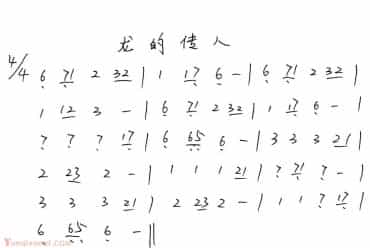 龙的传人
4/4 6 71 2 32 | 1 17 6 - | 6 71 2 32 |
1 12 3 - | 6 71 2 32 | 1 17 6 - |
7 7 7 17 | 6 65 6 - | 3 3 3 21 |
2 23 2 - | 1 1 1 21 | 7 71 7 - |
3 3 3 21 | 2 23 2 - | 1 1 7 17 |
6 65 6 - ||